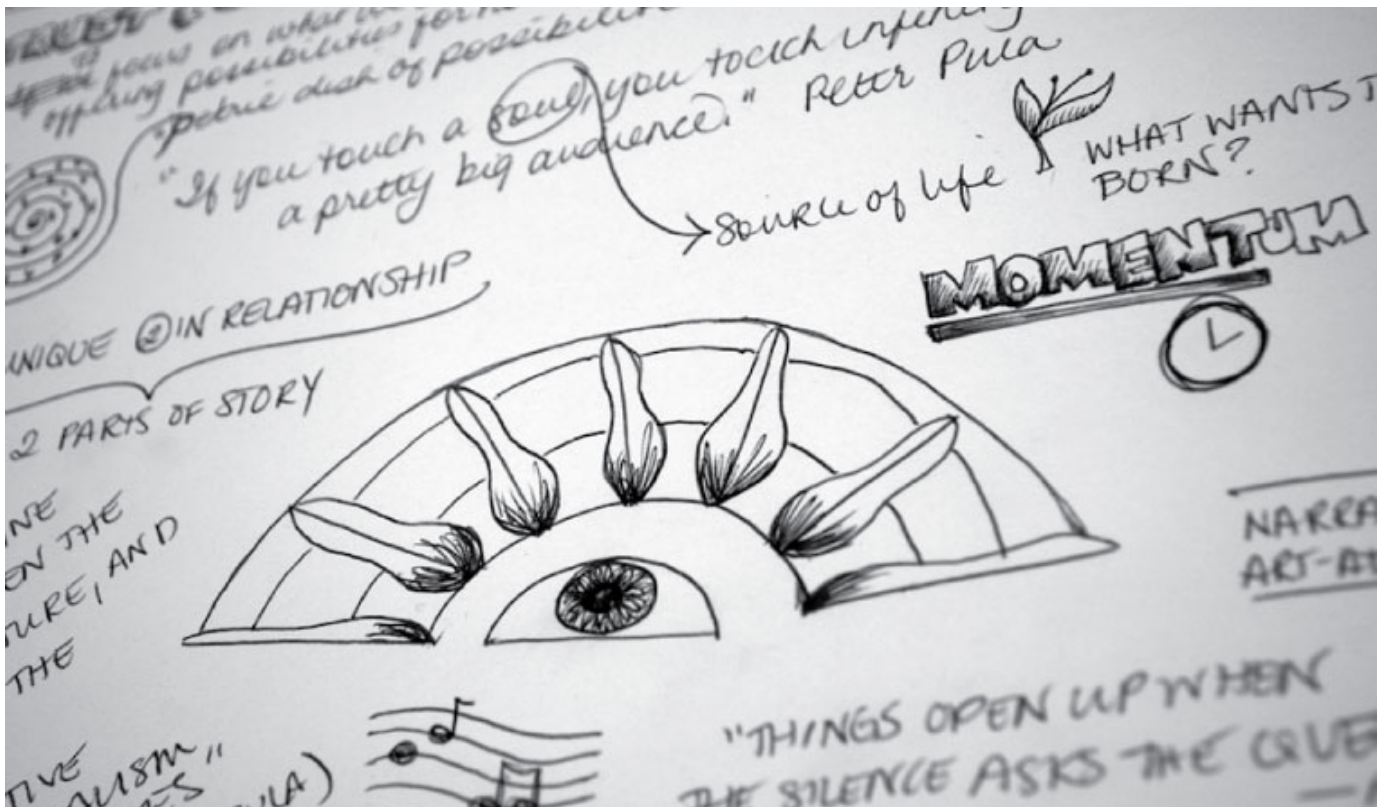 focus on what
offering possibilities for
petrie dish of possibilit
"If you touch a soul, you touch infinity
a pretty big audience." Peter Pula
source of life
WHAT WANTS T
BORN?
MOMENTUM
UNIQUE ② IN RELATIONSHIP
2 PARTS OF STORY
INE
EN THE
TURE, AND
THE
NARRA
ART-AT
TIVE
ALISM,"
RES
PULA)
"THINGS OPEN UP WHEN
THE SILENCE ASKS THE QUE